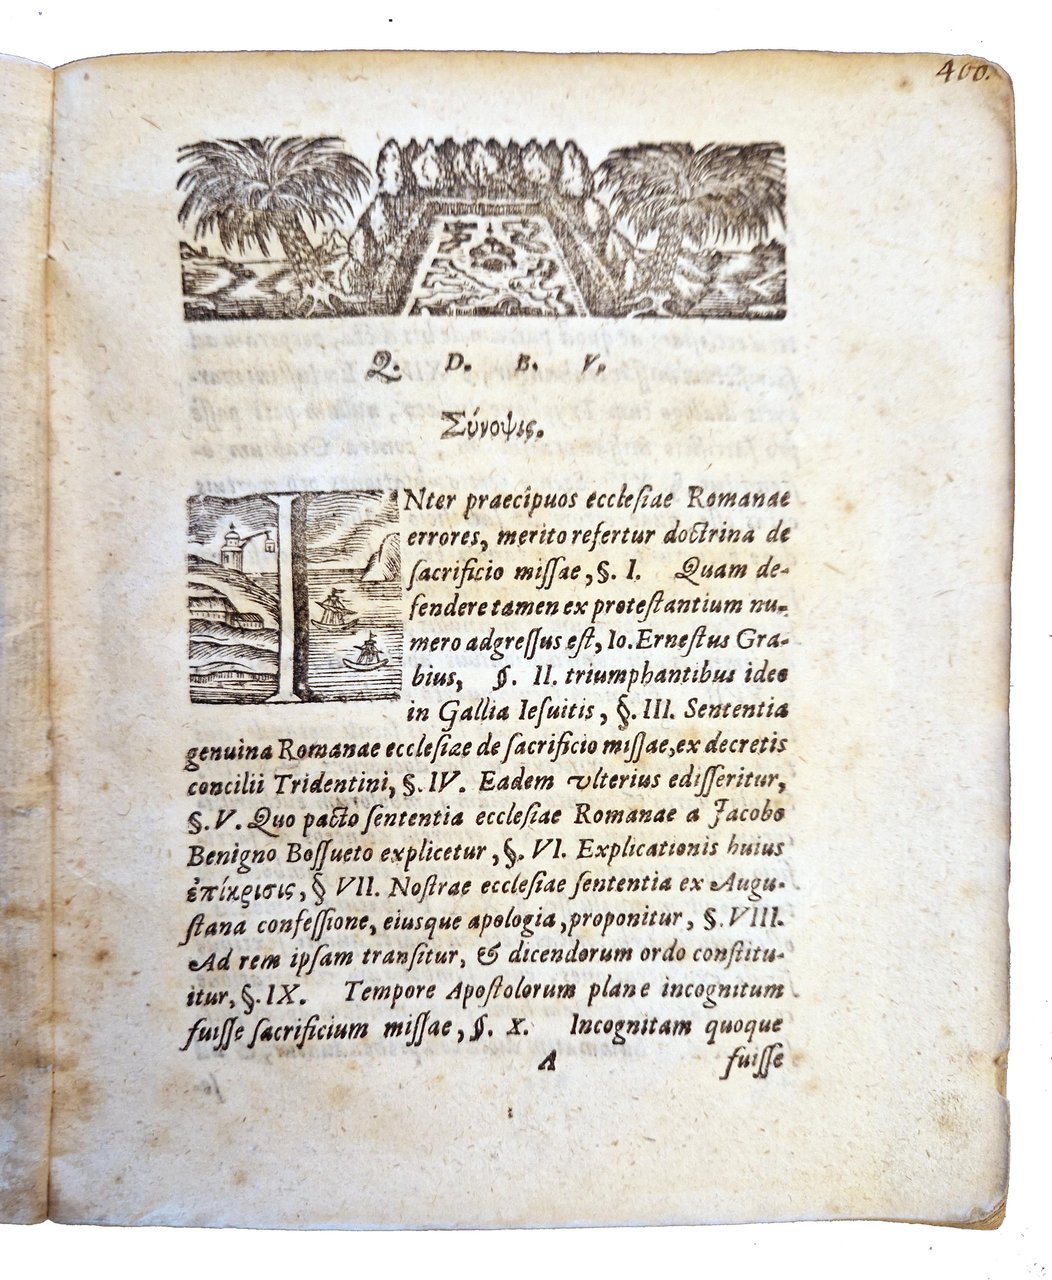 400.
Q. D. B. V.
Σύνοψις.
INter praecipuos ecclesiae Romanae
errores, merito refertur doctrina de
ſacrificio miſſae, §. I. Quam de-
fendere tamen ex proteſtantium nu-
mero adgreſſus eſt, Io. Erneſtus Gra-
bius, §. II. triumphantibus ideo
in Gallia Ieſuitis, §. III. Sententia
genuina Romanae eccleſiae de ſacrificio miſſae, ex decretis
concilii Tridentini, §. IV. Eadem vlterius ediſſeritur,
§. V. Quo pacto ſententia eccleſiae Romanae a Jacobo
Benigno Boſſueto explicetur, §. VI. Explicationis huius
ἐπίκρισις, § VII. Noſtrae eccleſiae ſententia ex Augu-
ſtana confeſſione, eiusque apologia, proponitur, §. VIII.
Ad rem ipſam tranſitur, & dicendorum ordo conſtitu-
itur, §. IX. Tempore Apoſtolorum plane incognitum
fuiſſe ſacrificium miſſae, §. X. Incognitam quoque
A fuiſſe